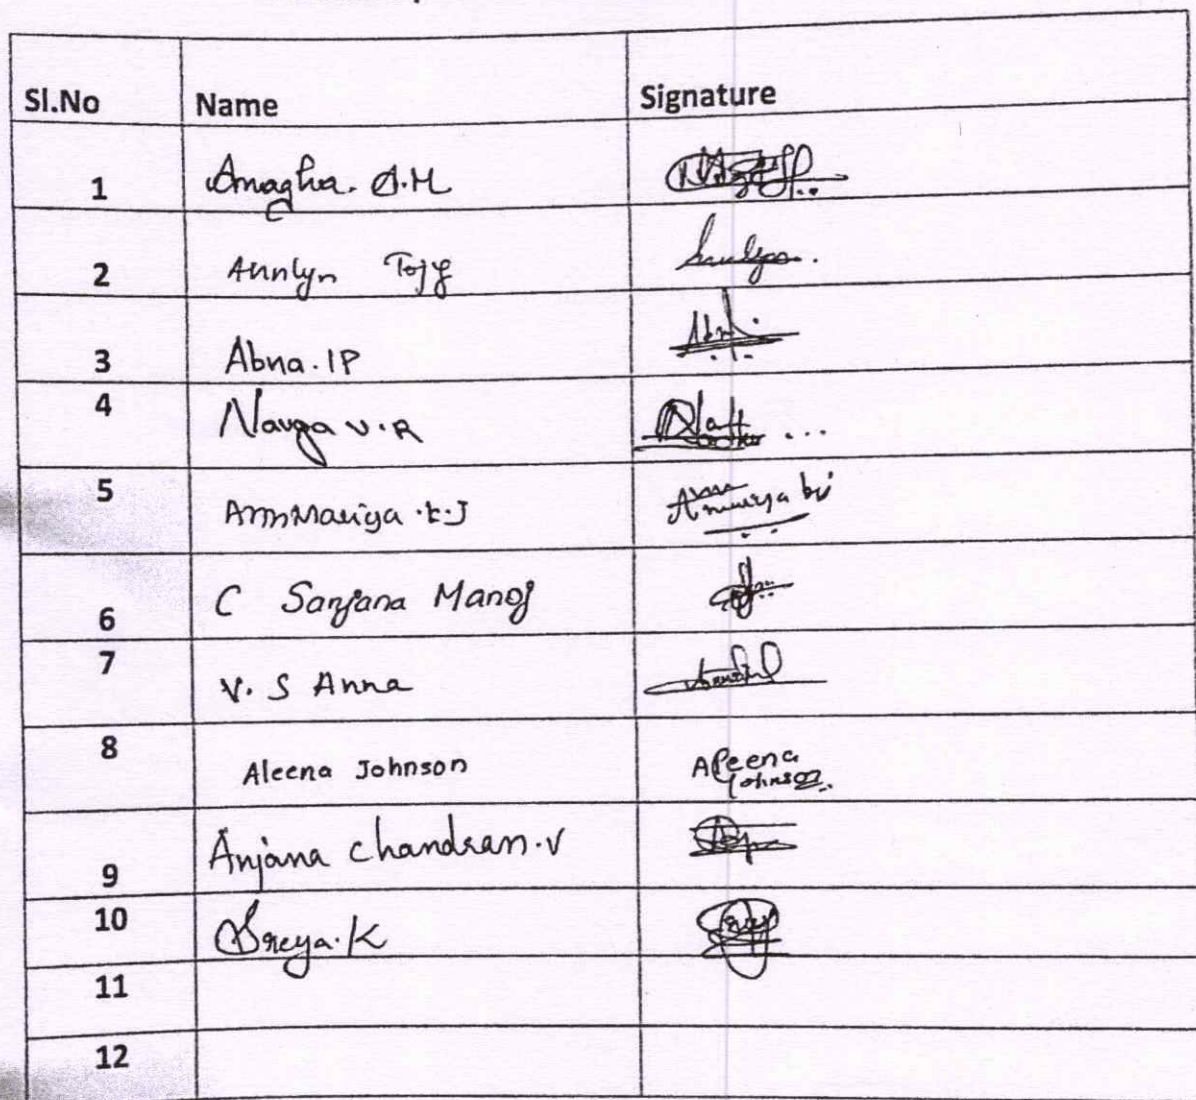 Sl.No Name Signature
1 Anagha. A.M
2 Annlyn Tojy
3 Abna. I P
4 Navya V.R
5 AnnMariya .K.J
6 C Sanjana Manoj
7 V. S Anna
8 Aleena Johnson Aleena
Johnson
9 Anjana Chandran.V
10 Sreya.K
11
12